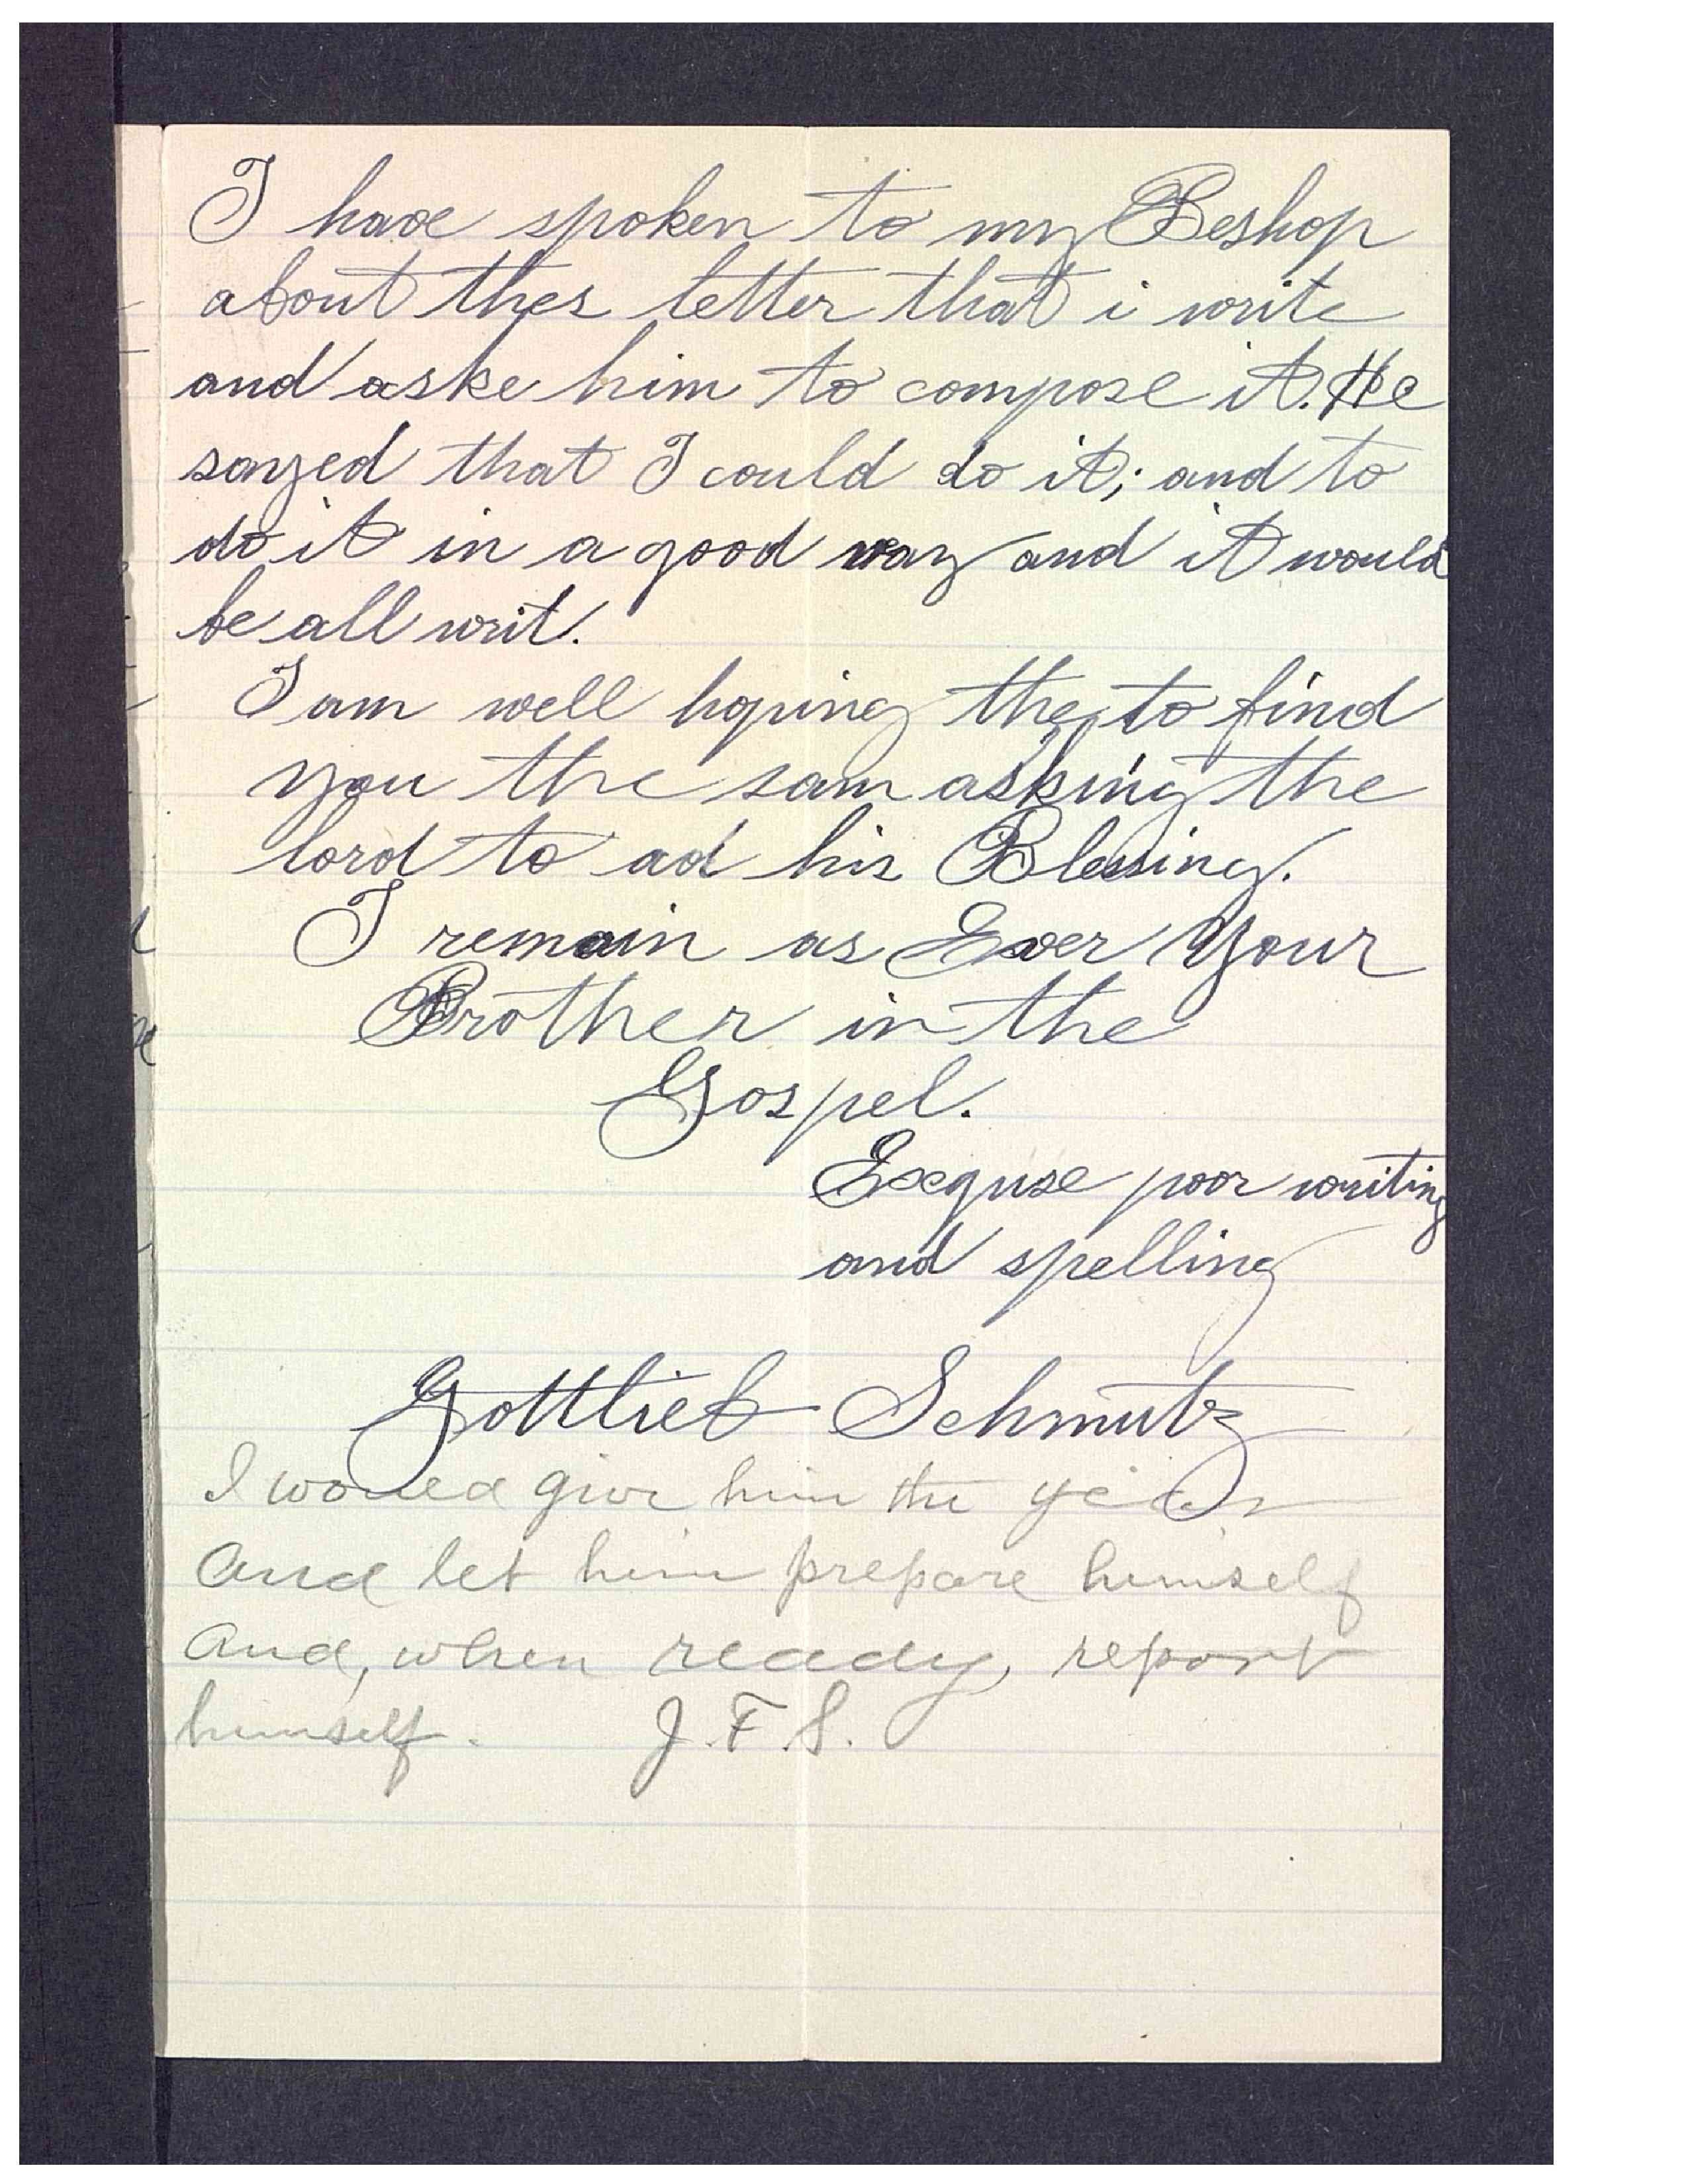 I have spoken to my Beshop
about thes letter that i write
and aske him to compose it. He
sayed that I could do it; and to
do it in a good way and it would
be all writ.
I am well hoping thes to find
you the sam asking the
lord to ad his Blessing.
I remain as Ever Your
Brother in the
Gospel.
Exquse poor writing
and spelling
Gottlieb Schmutz
I would give him the year
And let him prepare himself
And, when ready, report
himself. J. F. S.